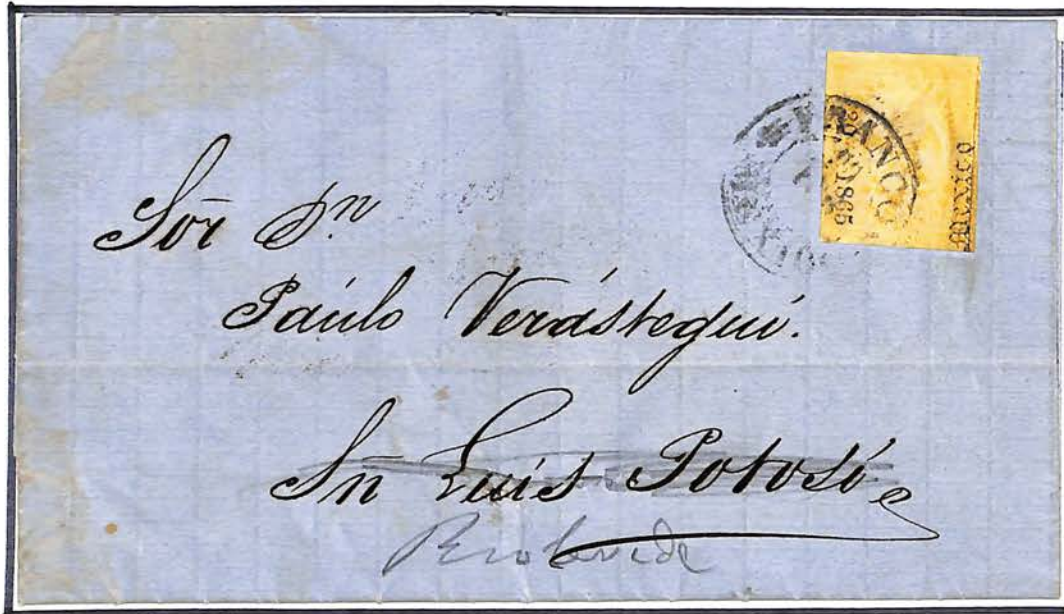 FRANCO
1865
Mexico
Sōr Dn
Páulo Verástegui.
Sn Luis Potosí
Rioverde